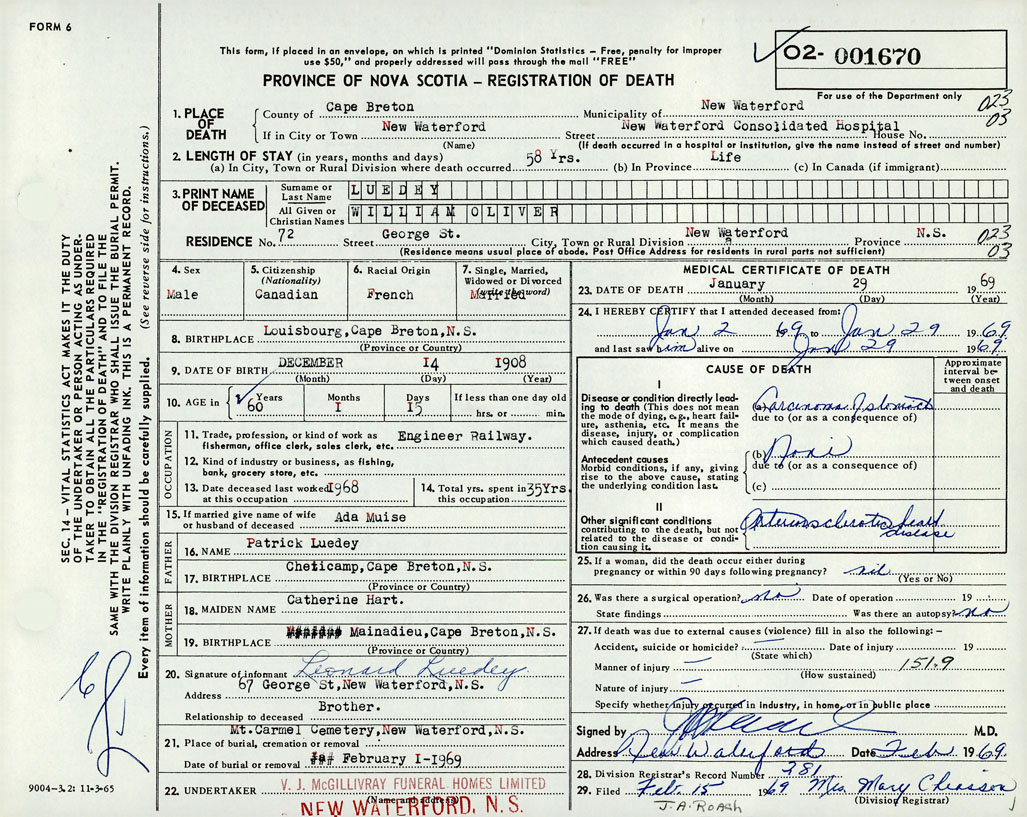 FORM 6
This form, if placed in an envelope, on which is printed "Dominion Statistics – Free, penalty for improper
use $50," and properly addressed will pass through the mail "FREE"
O2- 001670
PROVINCE OF NOVA SCOTIA – REGISTRATION OF DEATH
For use of the Department only
023
03
1. PLACE OF DEATH
County of Cape Breton Municipality of New Waterford
If in City or Town New Waterford Street New Waterford Consolidated Hospital House No.
(Name) (If death occurred in a hospital or institution, give the name instead of street and number)
2. LENGTH OF STAY (in years, months and days) 58 Yrs. Life
(a) In City, Town or Rural Division where death occurred (b) In Province (c) In Canada (if immigrant)
3. PRINT NAME OF DECEASED
Surname or Last Name LUEDEY
All Given or Christian Names WILLIAM OLIVER
RESIDENCE No. 72 Street George St. City, Town or Rural Division New Waterford Province N.S.
(Residence means usual place of abode. Post Office Address for residents in rural parts not sufficient)
023
03
4. Sex
Male
5. Citizenship
(Nationality)
Canadian
6. Racial Origin
French
7. Single, Married,
Widowed or Divorced
(write the word)
Married
8. BIRTHPLACE Louisbourg, Cape Breton, N.S.
(Province or Country)
9. DATE OF BIRTH DECEMBER 14 1908
(Month) (Day) (Year)
10. AGE in Years Months Days If less than one day old
60 I I5 hrs. or min.
OCCUPATION
11. Trade, profession, or kind of work as Engineer Railway.
fisherman, office clerk, sales clerk, etc.
12. Kind of industry or business, as fishing,
bank, grocery store, etc.
13. Date deceased last worked 1968
at this occupation
14. Total yrs. spent in 35Yrs.
this occupation
15. If married give name of wife
or husband of deceased Ada Muise
FATHER
16. NAME Patrick Luedey
17. BIRTHPLACE Cheticamp, Cape Breton, N.S.
(Province or Country)
MOTHER
18. MAIDEN NAME Catherine Hart.
19. BIRTHPLACE Mainadieu, Cape Breton, N.S.
(Province or Country)
20. Signature of informant Leonard Luedey
Address 67 George St, New Waterford, N.S.
Relationship to deceased Brother.
21. Place of burial, cremation or removal Mt. Carmel Cemetery, New Waterford, N.S.
Date of burial or removal February I-1969
22. UNDERTAKER V. J. McGILLIVRAY FUNERAL HOMES LIMITED
(Name and address)
NEW WATERFORD, N. S.
MEDICAL CERTIFICATE OF DEATH
23. DATE OF DEATH January 29 1969
(Month) (Day) (Year)
24. I HEREBY CERTIFY that I attended deceased from:
Jan 2 69 to Jan 29 1969
and last saw him alive on Jan 29 1969
CAUSE OF DEATH
Approximate interval between onset and death
I
Disease or condition directly leading to death (This does not mean the mode of dying, e.g., heart failure, asthenia, etc. It means the disease, injury, or complication which caused death.)
(a) Carcinoma of stomach
due to (or as a consequence of)
Antecedent causes
Morbid conditions, if any, giving rise to the above cause, stating the underlying condition last.
(b)
due to (or as a consequence of)
(c)
II
Other significant conditions
contributing to the death, but not related to the disease or condition causing it.
Arteriosclerotic heart
disease
25. If a woman, did the death occur either during
pregnancy or within 90 days following pregnancy? nil
(Yes or No)
26. Was there a surgical operation? no Date of operation 19
State findings Was there an autopsy? no
27. If death was due to external causes (violence) fill in also the following: –
Accident, suicide or homicide? Date of injury 19
(State which)
Manner of injury 151.9
(How sustained)
Nature of injury
Specify whether injury occurred in industry, in home, or in public place
Signed by M.D.
Address New Waterford Date Feb 1969
28. Division Registrar's Record Number 381
29. Filed Feb. 15 1969 Mrs. Mary Chiasson
(Division Registrar)
J. A. ROACH
SEC. 14 – VITAL STATISTICS ACT MAKES IT THE DUTY
OF THE UNDERTAKER OR PERSON ACTING AS UNDER-
TAKER TO OBTAIN ALL THE PARTICULARS REQUIRED
IN THE "REGISTRATION OF DEATH" AND TO FILE THE
SAME WITH THE DIVISION REGISTRAR WHO SHALL ISSUE THE BURIAL PERMIT.
WRITE PLAINLY WITH UNFADING INK. THIS IS A PERMANENT RECORD.
Every item of information should be carefully supplied. (See reverse side for instructions.)
9004-3.2: 11-3-65